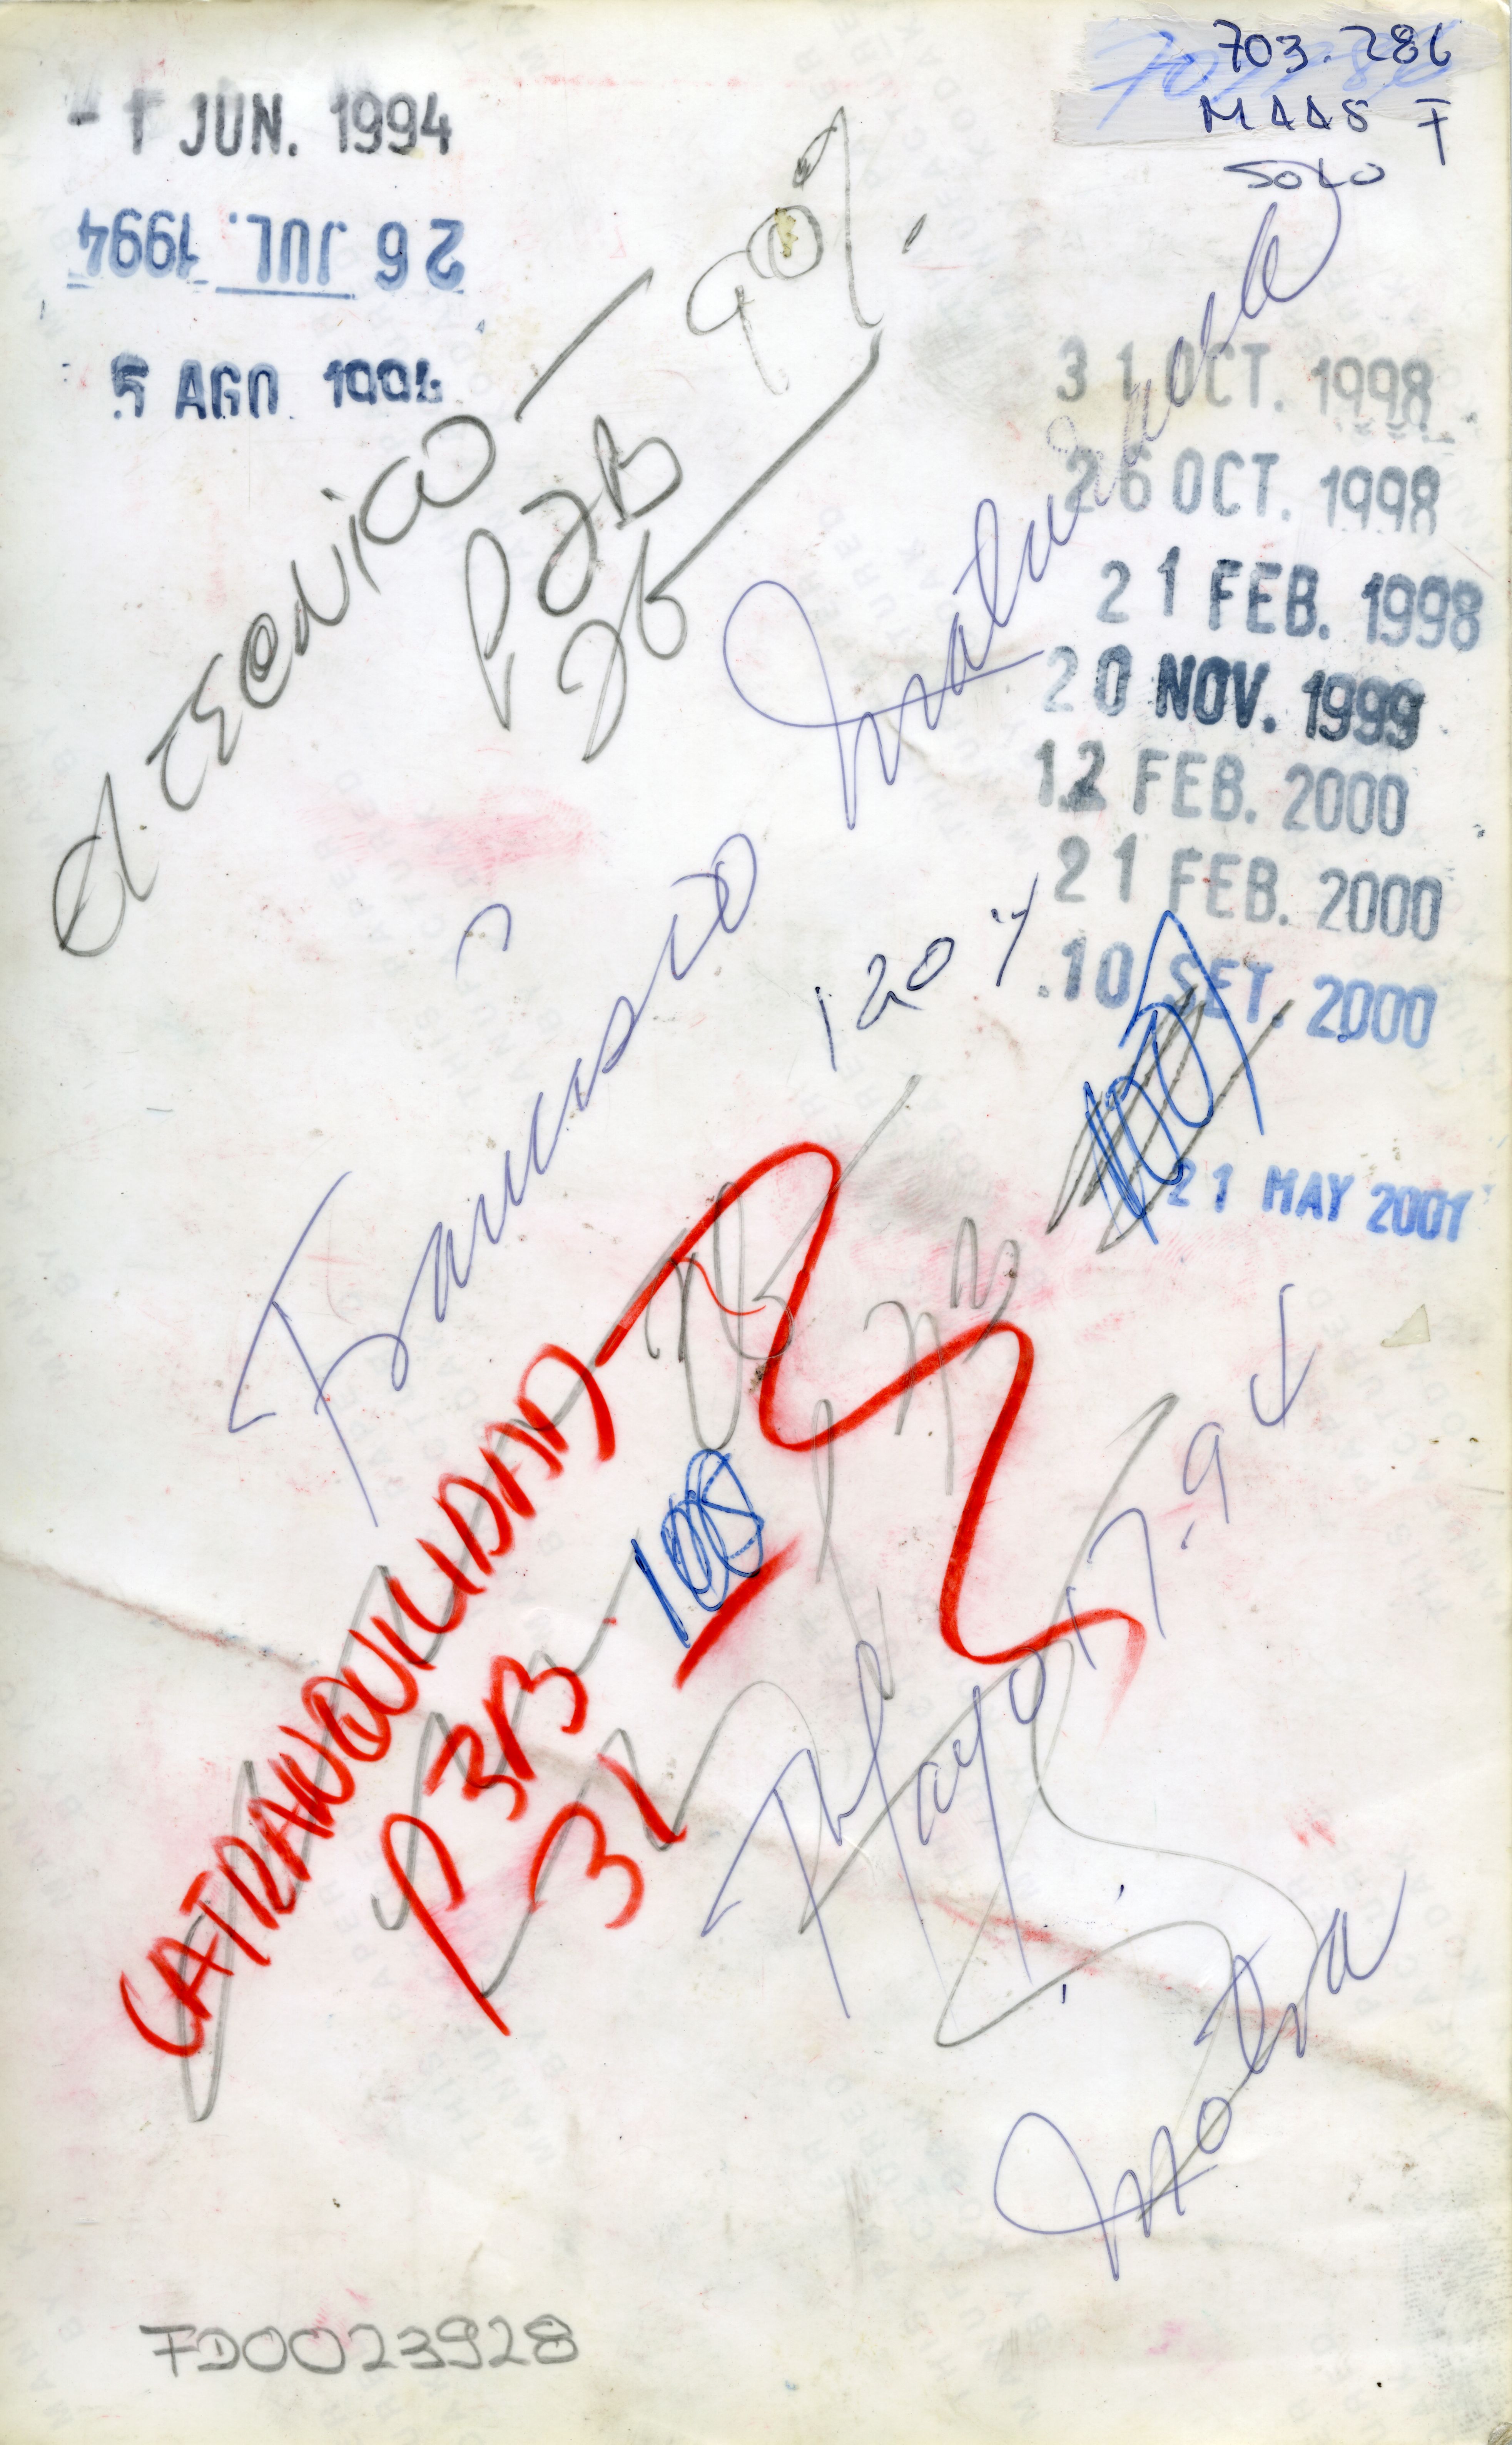 703.286
MAAS F
SOLO
- 1 JUN. 1994
26 JUL. 1994
5 AGO 1994
El TECNICO
90%
P2B
26
31 OCT. 1998
26 OCT. 1998
21 FEB. 1998
20 NOV. 1999
12 FEB. 2000
21 FEB. 2000
10 SET. 2000
21 MAY 2001
Francisco Maturana
120%
LATRANQUILIDAD
P3B
31
100
Mayo 17-94
FD0023928